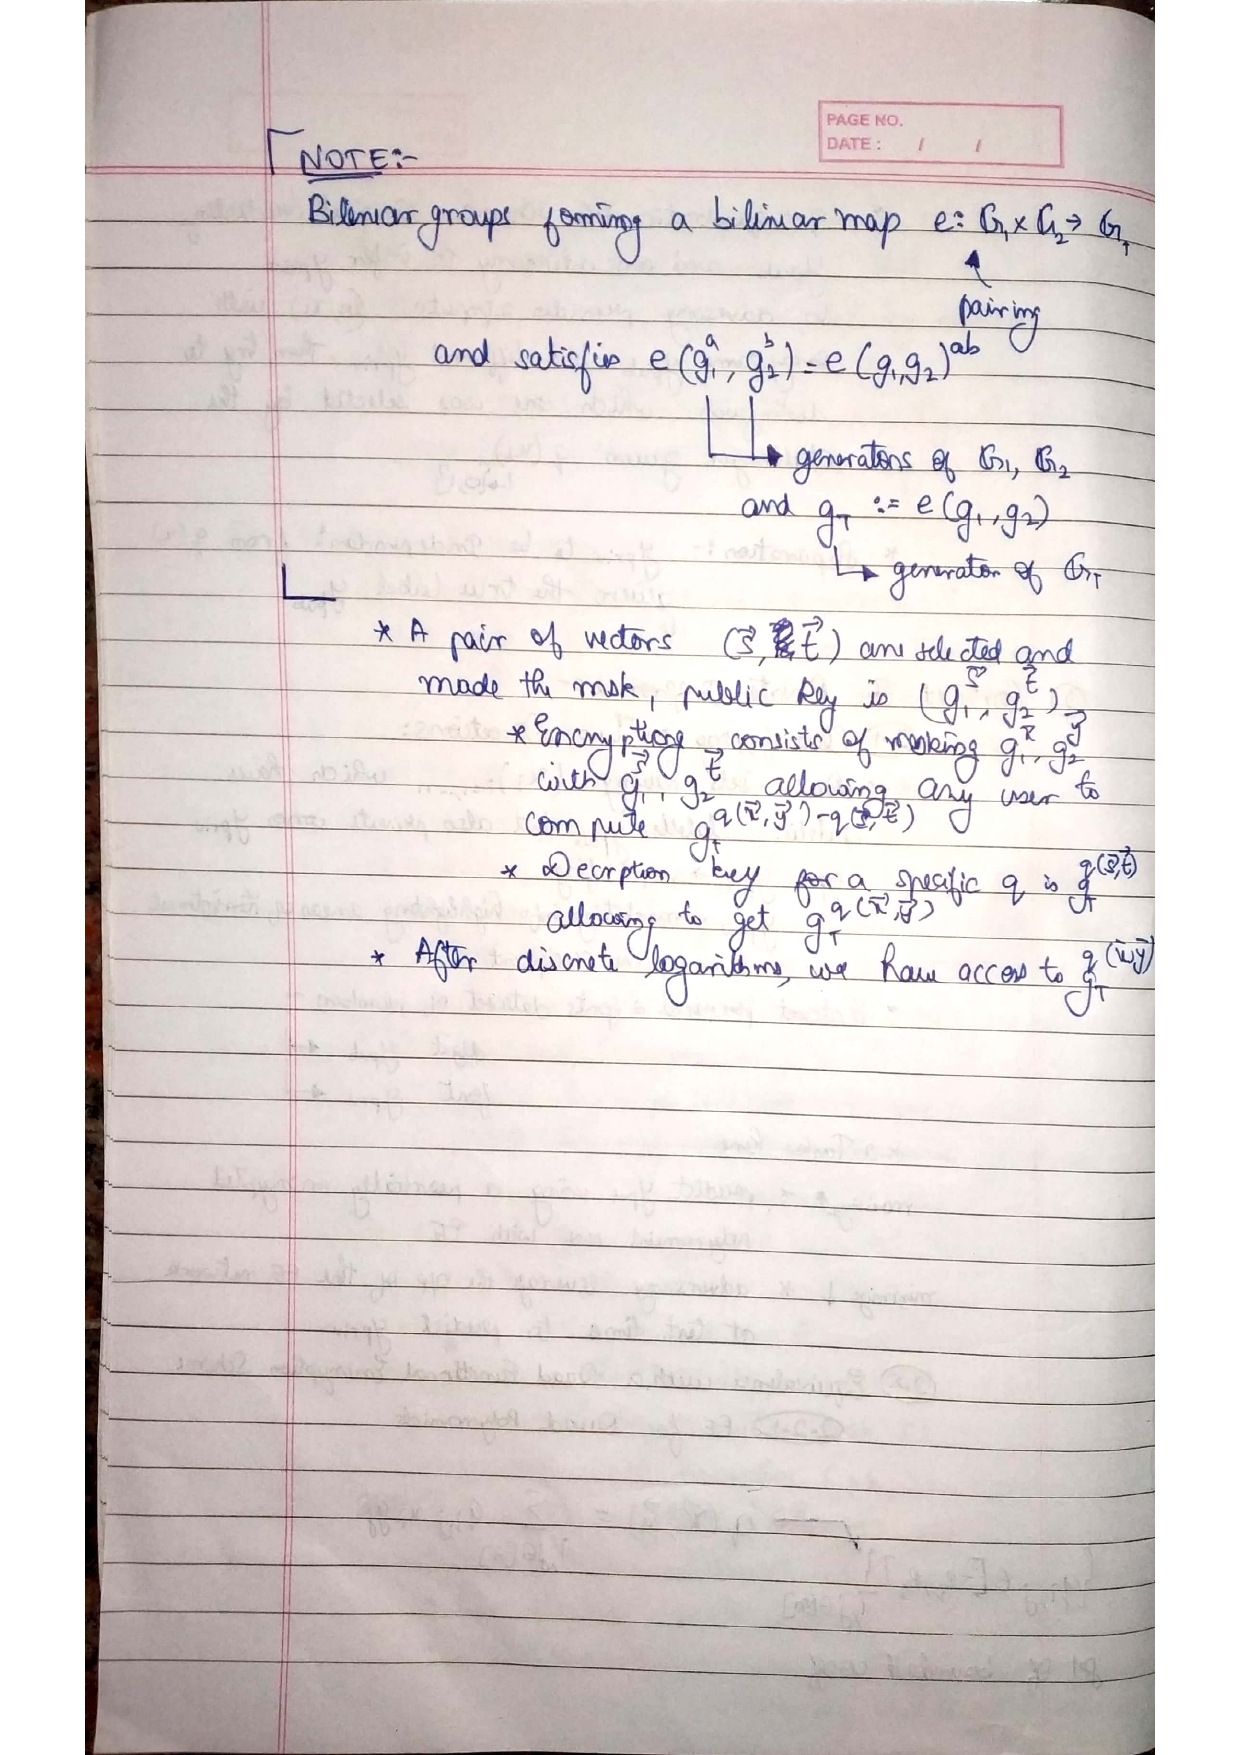 PAGE NO.
DATE : / /
NOTE:-
Bilinear groups forming a bilinear map e: G₁ x G₂ → G_T
pairing
and satisfies e (g₁^a, g₂^b) = e (g₁,g₂)^ab
generators of G₁, G₂
and g_T := e(g₁, g₂)
generator of G_T
* A pair of vectors (s⃗, t⃗) are selected and
made the msk, public key is (g₁^s⃗, g₂^t⃗)
* Encryption consists of masking g₁^x⃗, g₂^y⃗
with g₁^s⃗, g₂^t⃗ allowing any user to
compute g_T^q(x⃗, y⃗)-q(s⃗, t⃗)
* Decrption key for a specific q is g_T^q(s⃗,t⃗)
allowing to get g_T^q(x⃗,y⃗)
* After discrete logarithms, we have access to g_T^q(x⃗,y⃗)